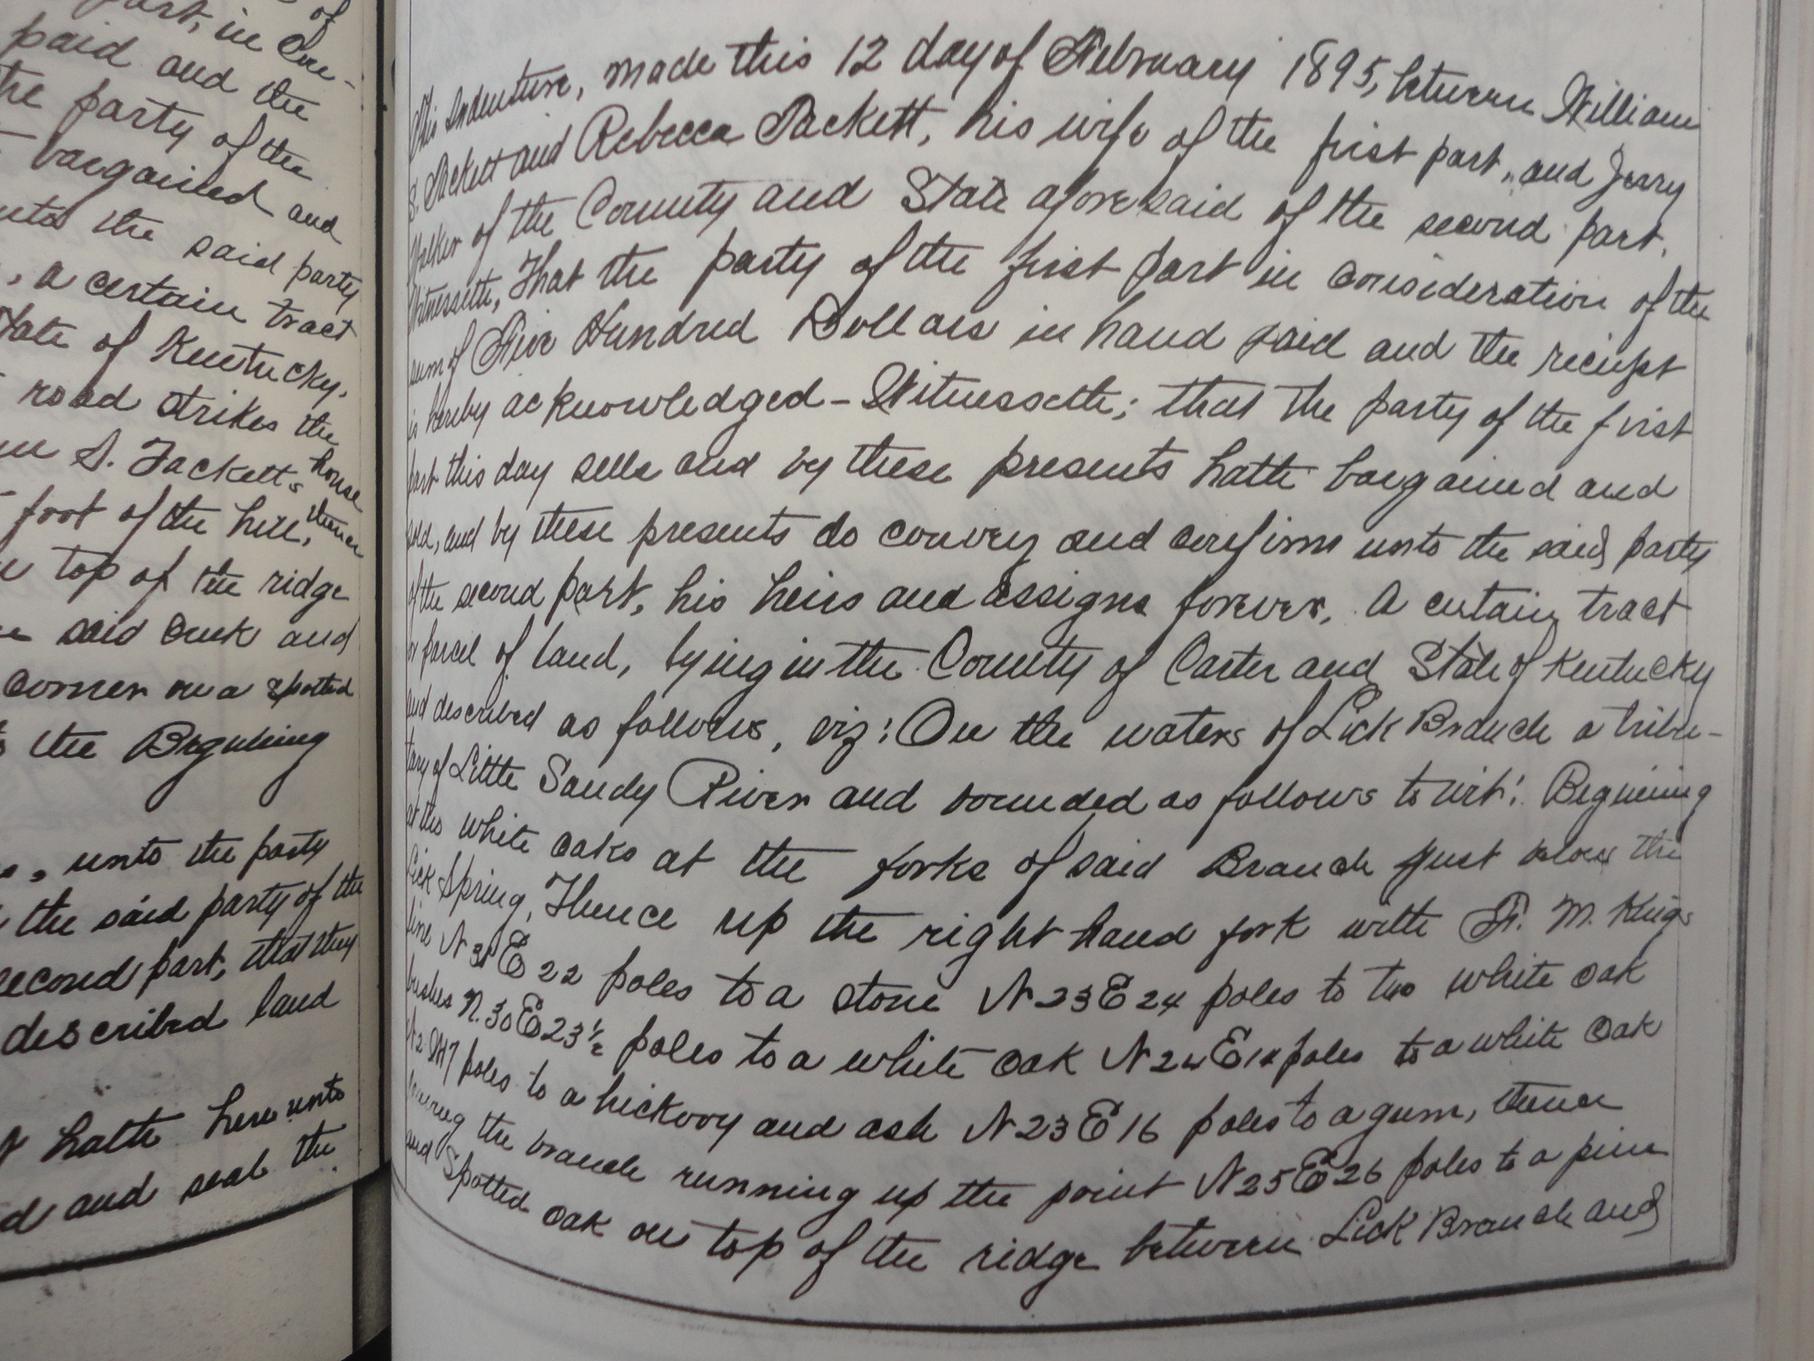 of
part, in Con-
paid and the
the party of the
bargained and
unto the said party
, a certain tract
State of Kentucky,
road strikes the
S. Tacketts house
foot of the hill, thence
top of the ridge
said Creek and
corner on a spotted
the Begining
unto the party
the said party of the
second part, that they
described land
hath here unto
and seal the
This Indenture, made this 12 day of February 1895, between William
S. Tackett and Rebecca Tackett, his wife of the first part, and Jerry
Walker of the County and State aforesaid of the second part.
Witnesseth, That the party of the first part in consideration of the
sum of Five Hundred Dollars in hand paid and the reciept
is hereby acknowledged - Witnesseth; that the party of the first
part this day sells and by these presents hath bargained and
sold, and by these presents do convey and confirm unto the said party
of the second part, his heirs and assigns forever, A certain tract
or parcel of land, lying in the County of Carter and State of Kentucky
and described as follows, viz: On the waters of Lick Branch a tribu-
tary of Little Sandy River and bounded as follows to wit: Begining
at two white oaks at the forks of said Branch just below the
Lick Spring, Thence up the right hand fork with F. M. Kings
line N E 22 poles to a stone N 23 E 24 poles to two white oak
bushes N. 30 E 23 ½ poles to a white oak N 24 E poles to a white oak
N 2 W 7 poles to a hickory and ash N 23 E 16 poles to a gum, thence
leaving the branch running up the point N 25 E 26 poles to a pine
and Spotted oak on top of the ridge between Lick Branch and